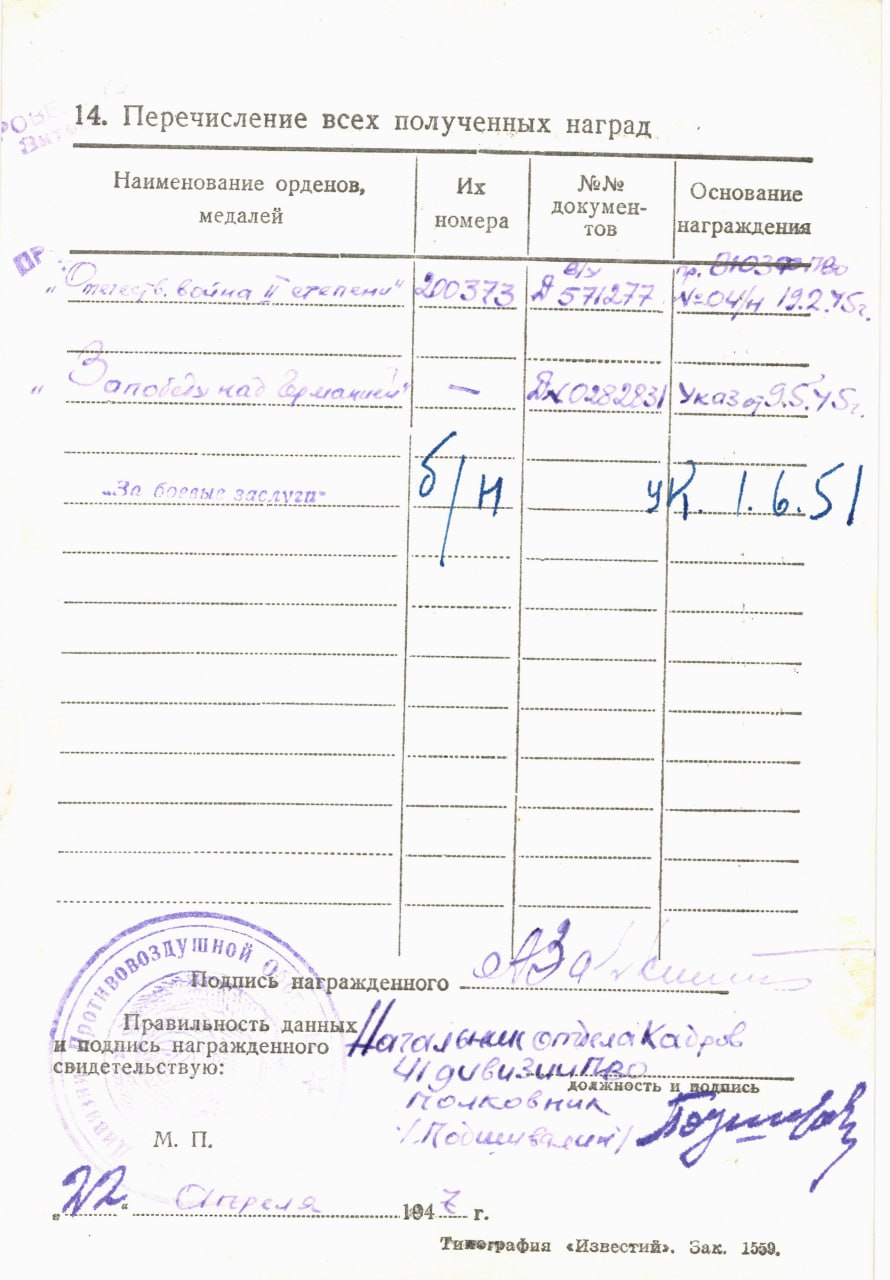 14. Перечисление всех полученных наград
Наименование орденов, медалей
Их номера
№№ докумен-
тов
Основание награждения
„Отечеств. война II степени“ 200373 в/у Д 571277 пр. ПВО №04/н 19.2.45г.
„За победу над Германией“ — 0282831 Указ от 9.5.45г.
„За боевые заслуги“ б/н ук. 1.6.51
Противовоздушной
Подпись награжденного
Правильность данных
и подпись награжденного
свидетельствую:
Начальник отдела Кадров
41 дивизии ПВО
должность и подпись
Полковник
/Подшивалин/
М. П.
„22“ Апреля 1947 г.
Типография «Известий». Зак. 1559.